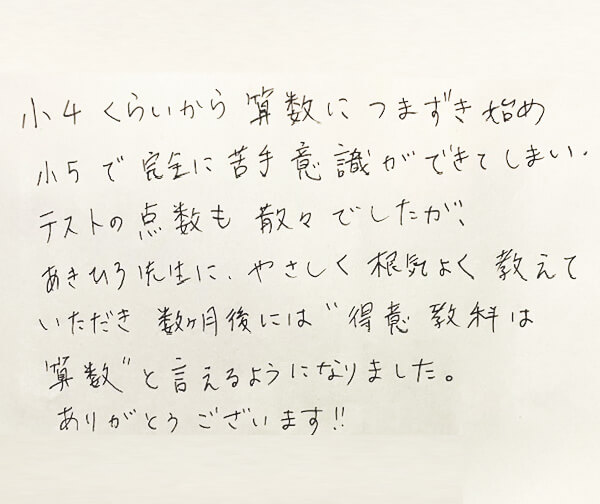 小4くらいから算数につまずき始め
小5で完全に苦手意識ができてしまい、
テストの点数も散々でしたが、
あきひろ先生に、やさしく根気よく教えて
いただき数ヶ月後には〝得意教科は
算数〟と言えるようになりました。
ありがとうございます!!